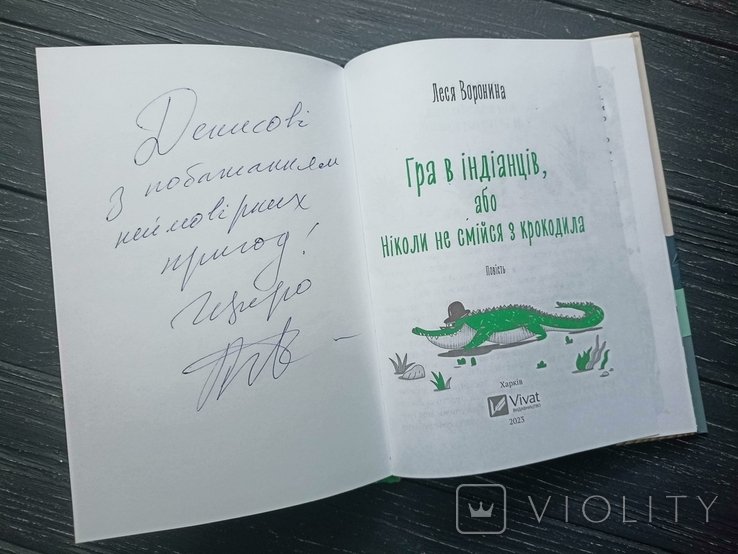 Денисові
з побажанням
неймовірних
пригод!
Щиро
Леся Воронина
Гра в індіанців,
або
Ніколи не смійся з крокодила
Повість
Харків
Vivat
видавництво
2023
VIOLITY